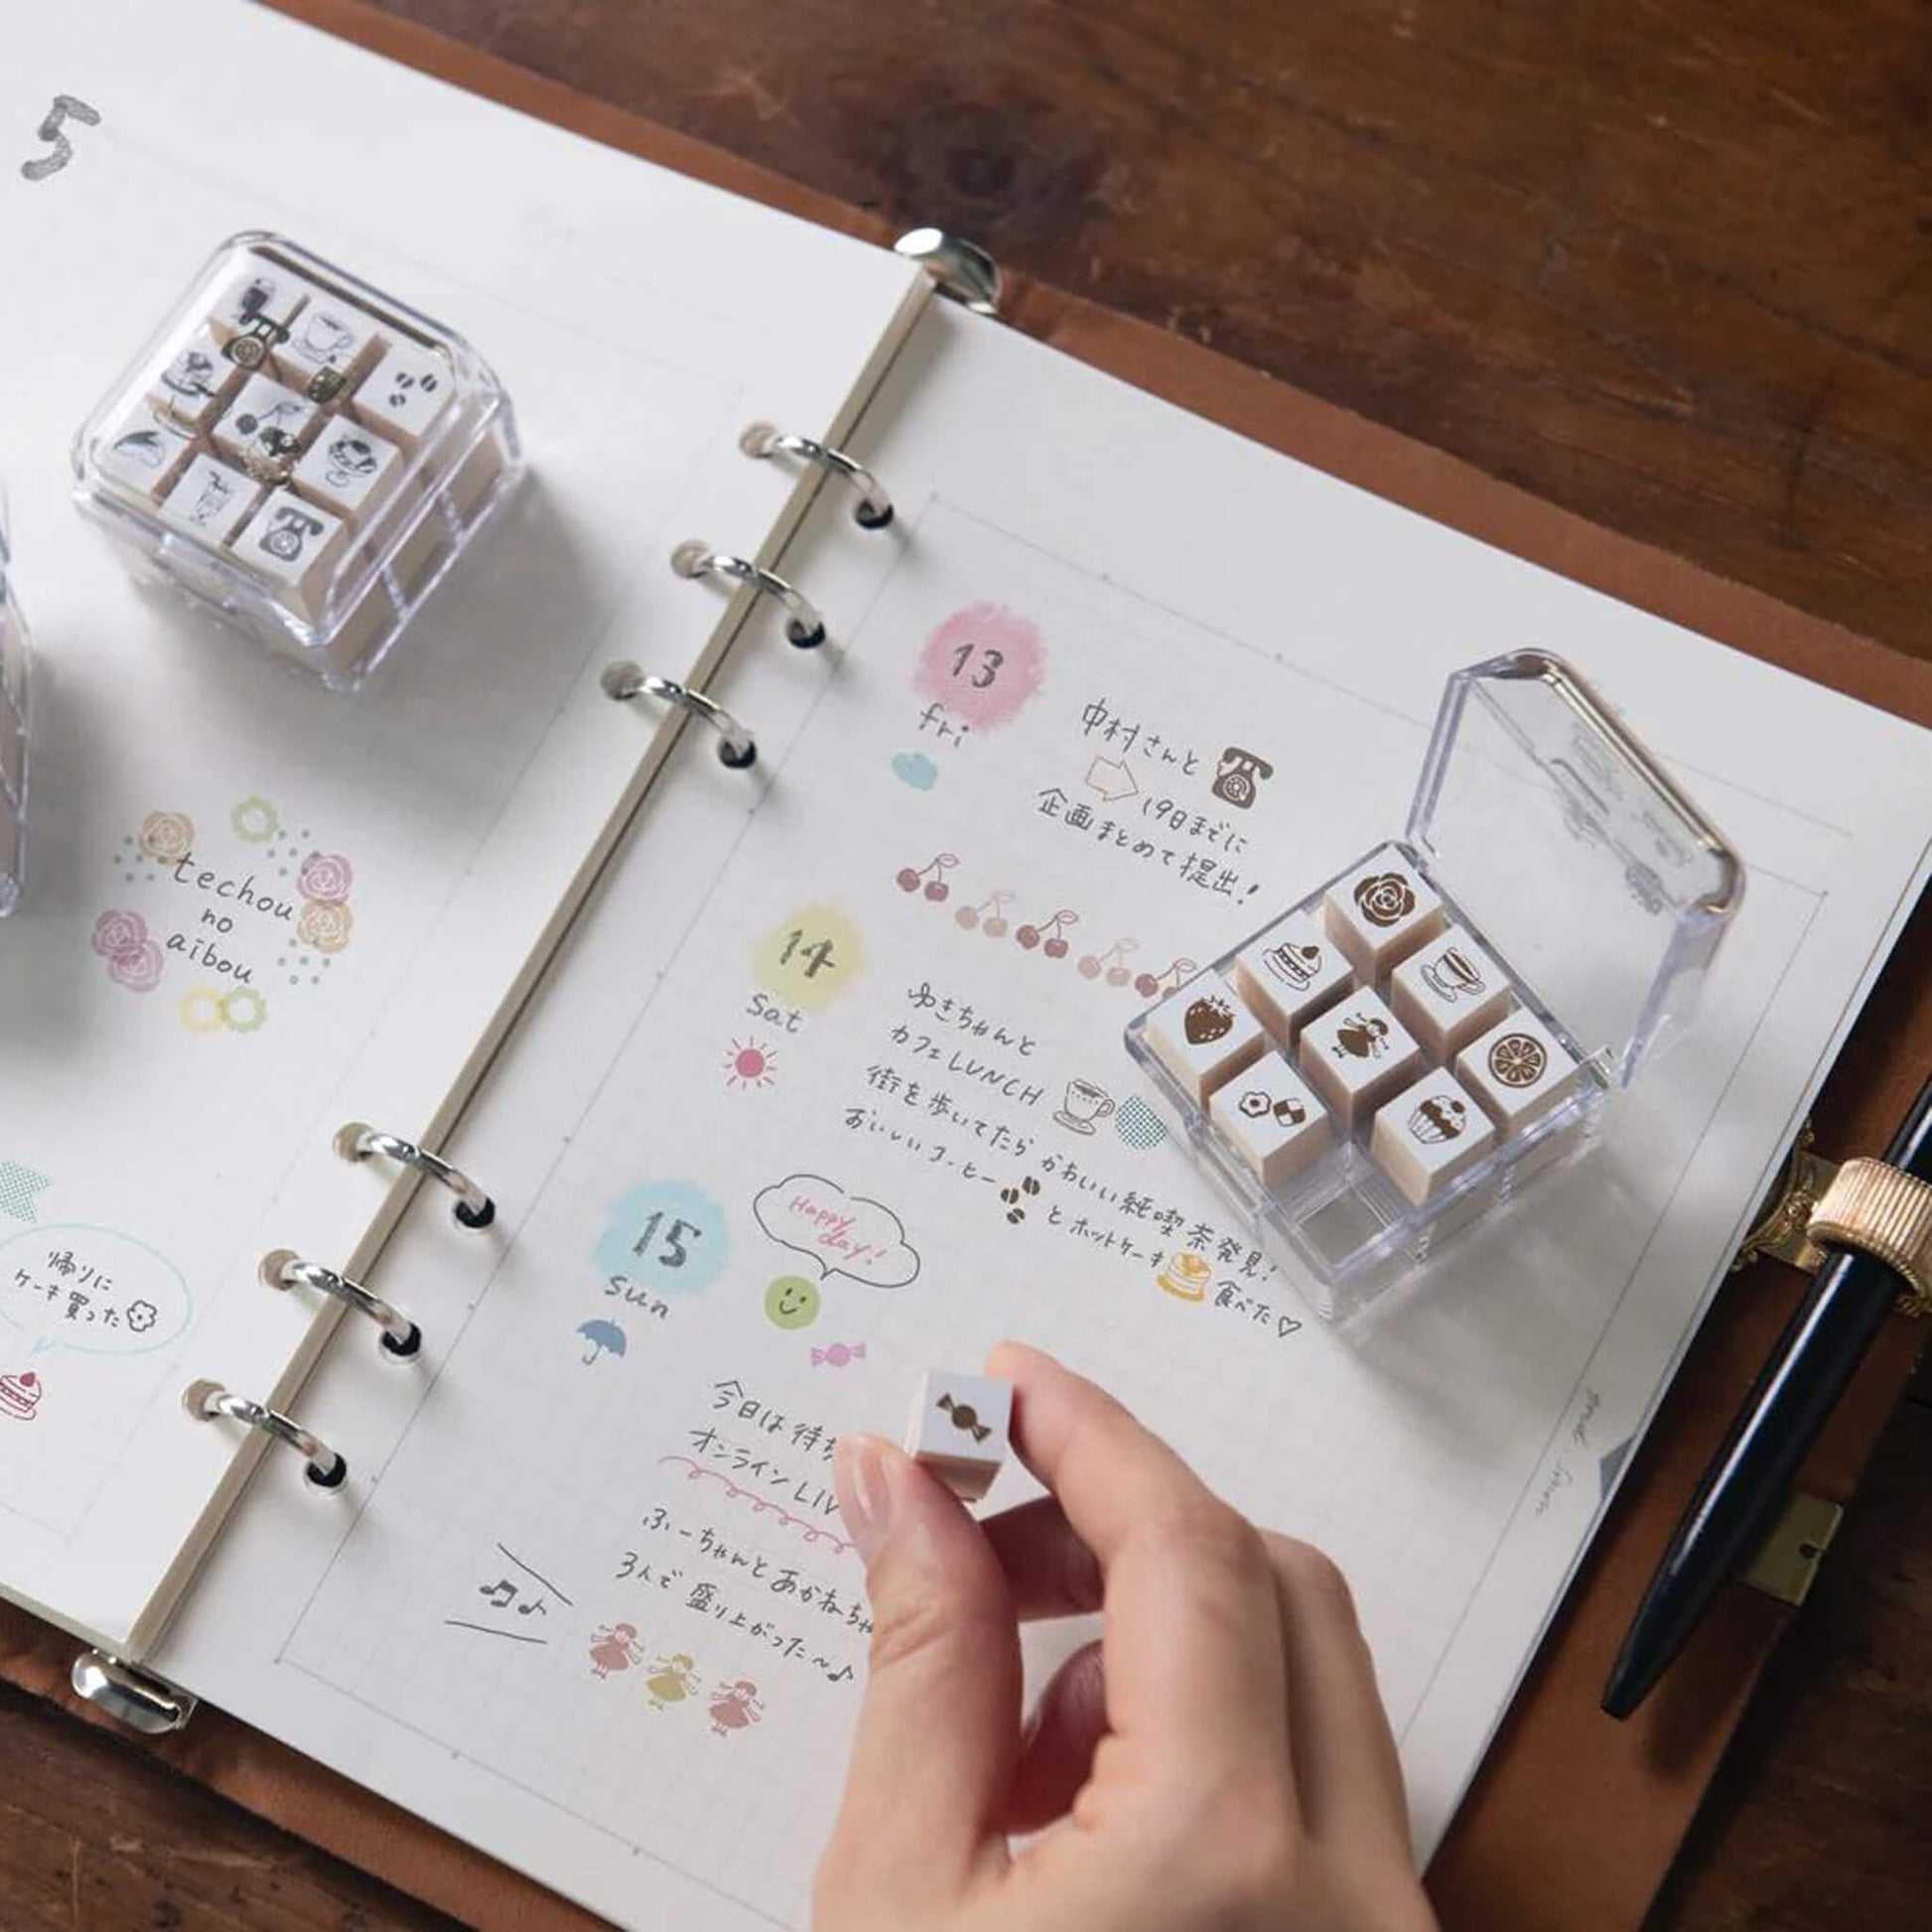 5
techou
no
aibou
帰りに
ケーキ買った
13
fri
中村さんと
19日までに
企画まとめて提出!
14
sat
ゆきちゃんと
カフェLUNCH
街を歩いてたらかわいい純喫茶発見!
おいしいコーヒーとホットケーキ食べた♡
15
sun
Happy
day!
今日は待ち
オンラインLIV
ふーちゃんとあかねちゃ
3人で盛り上がった〜♪